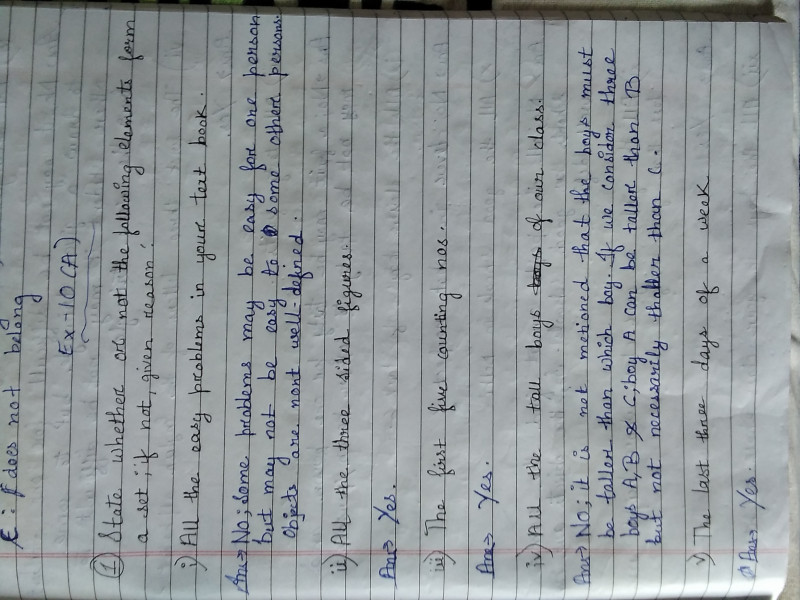 ∉ : f does not belong
Ex-10(A)
① State whether or not the following elements form
a set; if not, given reason.
i) All the easy problems in your text book.
Ans⇒ No; some problems may be easy for one person
but may not be easy to some other persons.
Objects are nont well-defined.
ii) All the three sided figures.
Ans⇒ Yes.
iii) The first five counting nos.
Ans⇒ Yes.
iv) All the tall boys of our class.
Ans⇒ No; it is not metioned that the boys must
be taller than which boy. If we consider three
boys A, B & C; boy A can be taller than B
but not necessarily thatter than C.
v) The last three days of a week
Ans⇒ Yes.